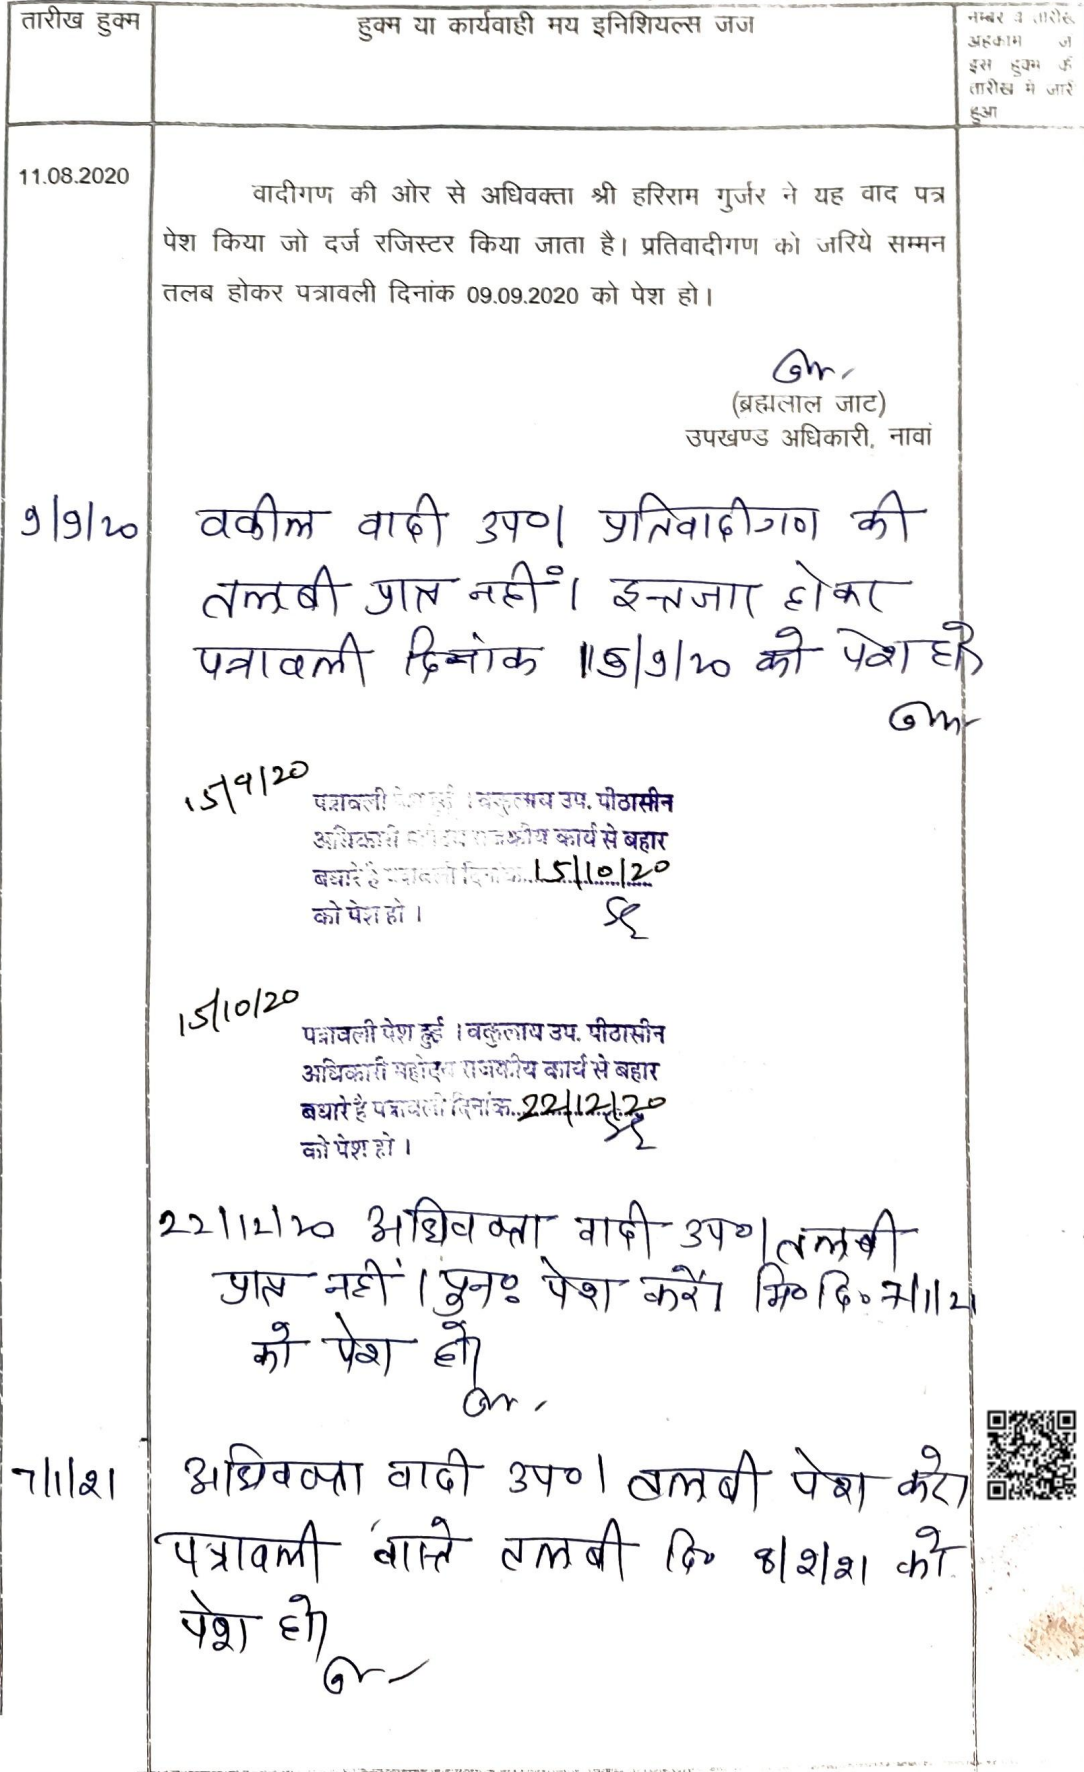 तारीख हुक्म
हुक्म या कार्यवाही मय इनिशियल्स जज
नम्बर व तारीख
अहकाम ज
इस हुक्म की
तारीख मे जारी
हुआ
11.08.2020
वादीगण की ओर से अधिवक्ता श्री हरिराम गुर्जर ने यह वाद पत्र
पेश किया जो दर्ज रजिस्टर किया जाता है। प्रतिवादीगण को जरिये सम्मन
तलब होकर पत्रावली दिनांक 09.09.2020 को पेश हो।
(ब्रह्मलाल जाट)
उपखण्ड अधिकारी, नावां
9/9/20 वकील वादी उप०। प्रतिवादीगण की
तलबी प्राप्त नहीं। इन्तजार होकर
पत्रावली दिनांक 15/9/20 को पेश हो।
15/9/20
पत्रावली पेश हुई । वकुलाय उप. पीठासीन
अधिकारी महोदय राजकीय कार्य से बहार
बधारे है पत्रावली दिनांक 15/10/20
को पेश हो ।
15/10/20
पत्रावली पेश हुई । वकुलाय उप. पीठासीन
अधिकारी महोदय राजकीय कार्य से बहार
बधारे है पत्रावली दिनांक 22/12/20
को पेश हो ।
22/12/20 अधिवक्ता वादी उप०। तलबी
प्राप्त नहीं। पुनः पेश करें। मि० दि० 7/1/21
को पेश हो।
7/1/21 अधिवक्ता वादी उप०। तलबी पेश करे।
पत्रावली वास्ते तलबी दि० 8/2/21 को
पेश हो।